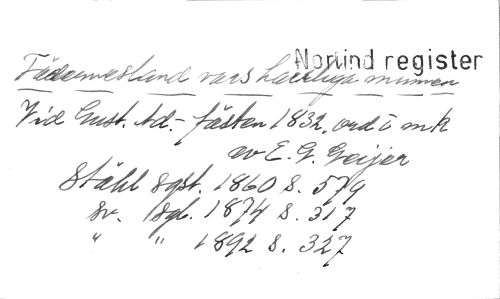 Norlind register
Fädernesland vars härliga minnen
Vid Gust. Ad.- fästen 1832, ord o mk
av E. G. Geijer
Ståhl sgst. 1860 s. 579
sv. sgb. 1874 s. 317
" " 1892 s. 327